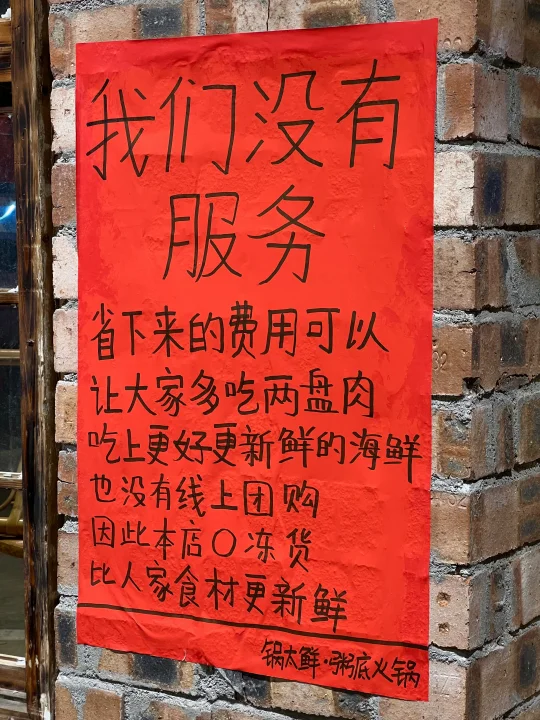 我们没有
服务
省下来的费用可以
让大家多吃两盘肉
吃上更好更新鲜的海鲜
也没有线上团购
因此本店〇冻货
比人家食材更新鲜
锅太鲜·粥底火锅